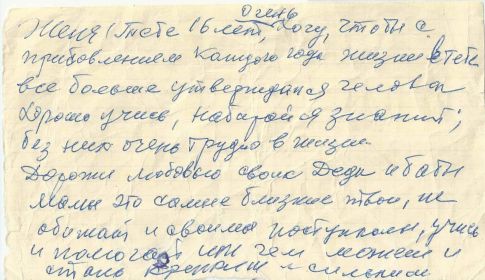 Очень
Женя! Тебе 16 лет, хочу, чтобы с
прибовлением каждого года жизни в тебе
все больше утверждался человек
Хорошо учись, набирайся знаний;
без них очень трудно в жизни.
Дорожи любовью своих Деда и бабы
мамы это самые близкие твои, не
обижай и своими поступками, учись
и помогай им чем можешь и
стань крепким и сильным